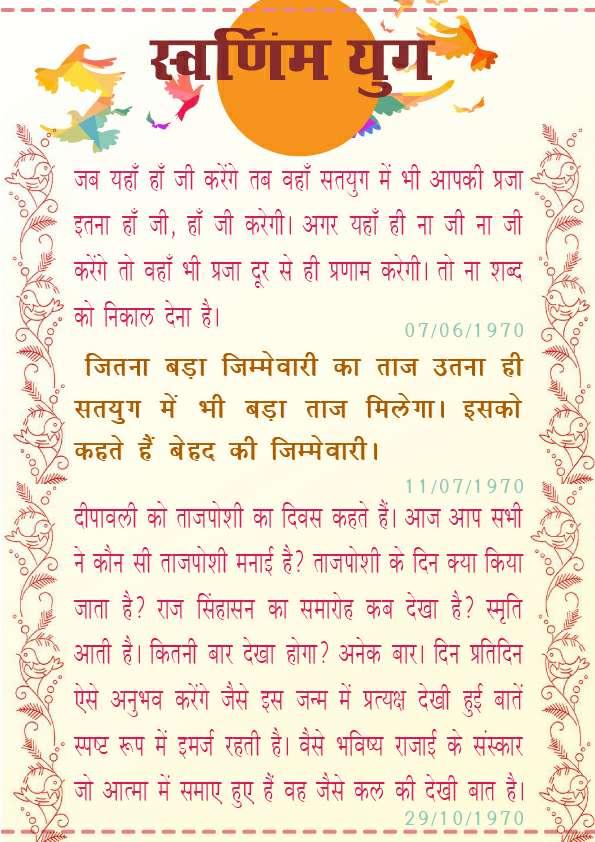 स्वर्णिम युग
जब यहाँ हाँ जी करेंगे तब वहाँ सतयुग में भी आपकी प्रजा
इतना हाँ जी, हाँ जी करेगी। अगर यहाँ ही ना जी ना जी
करेंगे तो वहाँ भी प्रजा दूर से ही प्रणाम करेगी। तो ना शब्द
को निकाल देना है।
07/06/1970
जितना बड़ा जिम्मेवारी का ताज उतना ही
सतयुग में भी बड़ा ताज मिलेगा। इसको
कहते हैं बेहद की जिम्मेवारी।
11/07/1970
दीपावली को ताजपोशी का दिवस कहते हैं। आज आप सभी
ने कौन सी ताजपोशी मनाई है? ताजपोशी के दिन क्या किया
जाता है? राज सिंहासन का समारोह कब देखा है? स्मृति
आती है। कितनी बार देखा होगा? अनेक बार। दिन प्रतिदिन
ऐसे अनुभव करेंगे जैसे इस जन्म में प्रत्यक्ष देखी हुई बातें
स्पष्ट रूप में इमर्ज रहती है। वैसे भविष्य राजाई के संस्कार
जो आत्मा में समाए हुए हैं वह जैसे कल की देखी बात है।
29/10/1970